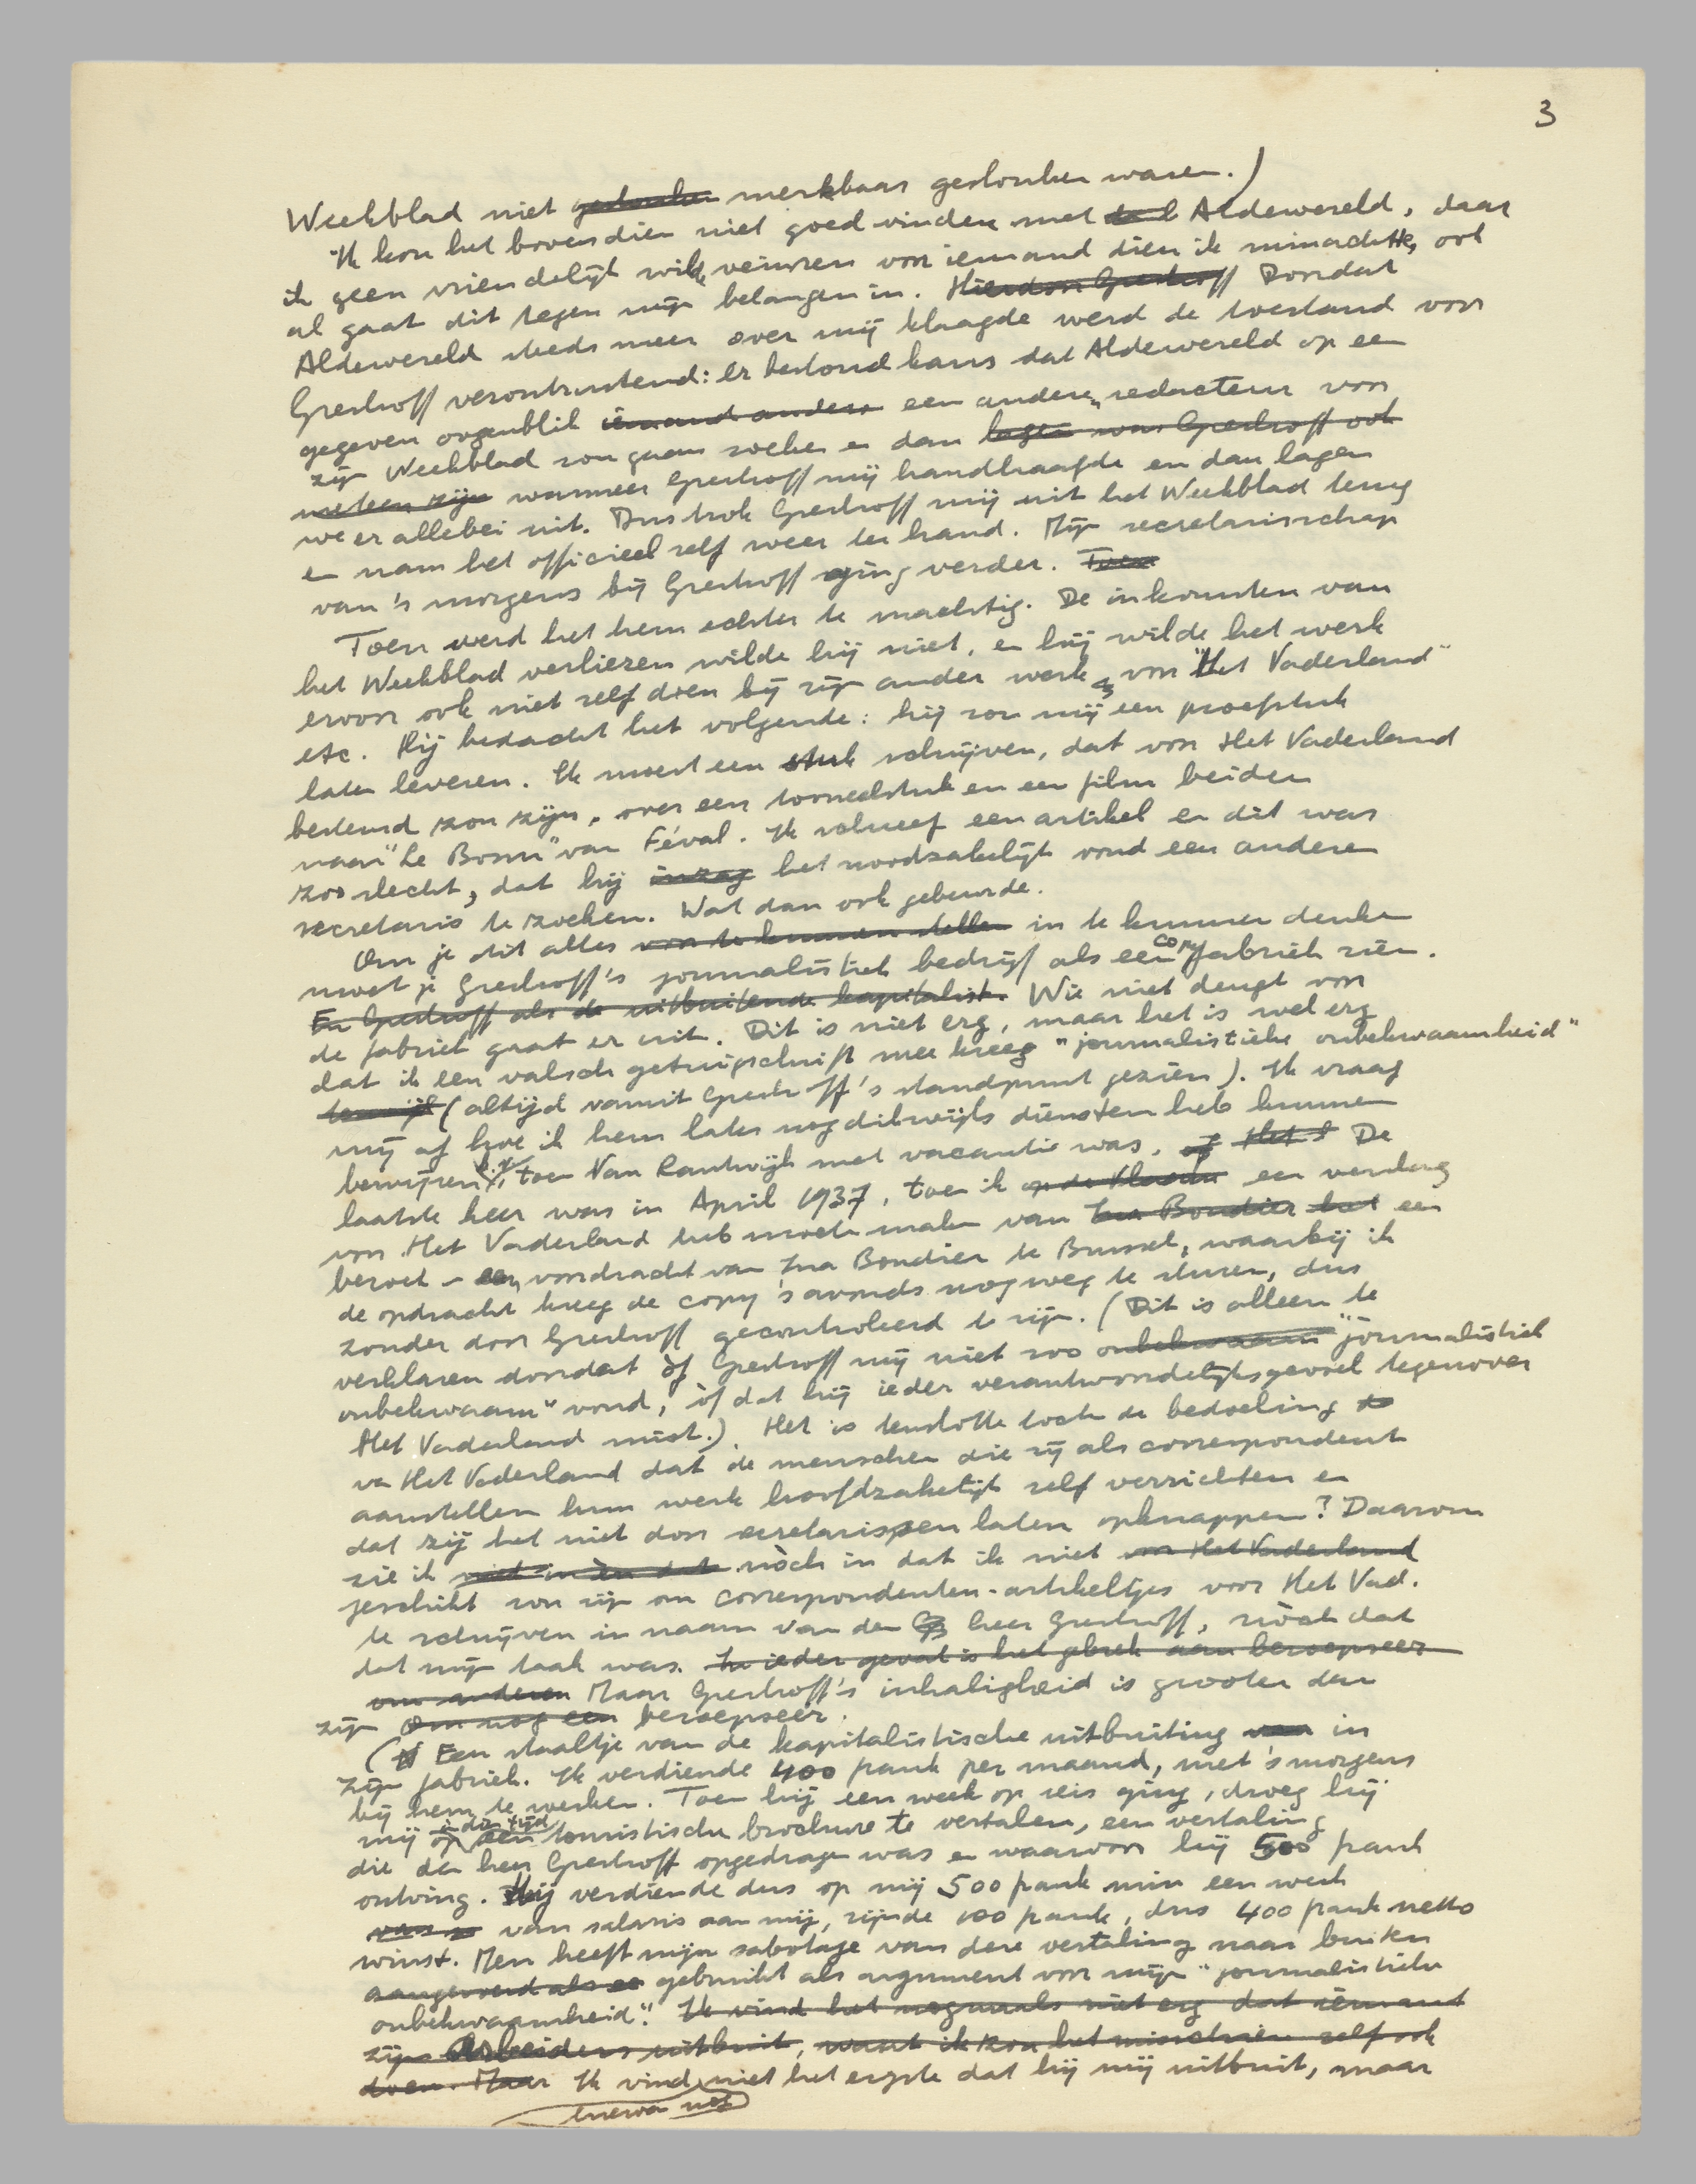 3
Weekblad niet gedronken merkbaar gedronken waren.)
Ik kon het bovendien niet goed vinden met Aldewereld, daar
ik geen vriendelijk wilde veinzen voor iemand dien ik minachtte, ook
al gaat dit tegen mijn belangen in. Hierdoor Greshoff Doordat
Aldewereld steeds meer over mij klaagde werd de toestand voor
Greshoff verontrustend: er bestond kans dat Aldewereld op een
gegeven oogenblik iemand anders een andere redacteur voor
zijn Weekblad zou gaan zoeken en dan lagen was Greshoff ook
meteen zijn wanneer Greshoff mij handhaafde en dan lagen
we er allebei uit. Dus trok Greshoff mij uit het Weekblad terug
en nam het officieel zelf weer ter hand. Mijn secretarisschap
van 's morgens bij Greshoff ging verder. Toen
Toen werd het hem echter te machtig. De inkomsten van
het Weekblad verliezen wilde hij niet, en hij wilde het werk
ervoor ook niet zelf doen bij zijn ander werk voor "Het Vaderland"
etc. Hij bedacht het volgende: hij zou mij een proefstuk
laten leveren. Ik moest een stuk schrijven, dat voor Het Vaderland
bestemd zou zijn, over een tooneelstuk en een film beiden
naar "Le Bossu" van Féval. Ik schreef een artikel en dit was
zoo slecht, dat hij inzag het noodzakelijk vond een andere
secretaris te zoeken. Wat dan ook gebeurde.
Om je dit alles voor te kunnen stellen in te kunnen denken
moet je Greshoff's journalistiek bedrijf als een copy fabriek zien.
En Greshoff als de uitbuitende kapitalist. Wie niet deugt voor
de fabriek gaat er uit. Dit is niet erg, maar het is wel erg
dat ik een valsch getuigschrift mee kreeg "journalistieke onbekwaamheid"
terwijl (altijd vanuit Greshoff's standpunt gezien). Ik vraag
mij af hoe ik hem later nog dikwijls diensten heb kunnen
bewijzen b.v. toen Van Rantwijk met vacantie was, of Het De
laatste keer was in April 1937, toen ik op de Vlaamse een verslag
voor Het Vaderland heb moeten maken van Ina Boudier het een
bezoek - een voordracht van Ina Boudier te Brussel, waarbij ik
de opdracht kreeg de copy 's avonds nog weg te sturen, dus
zonder door Greshoff gecontroleerd te zijn. (Dit is alleen te
verklaren doordat òf Greshoff mij niet zoo onbekwaam "journalistiek
onbekwaam" vond, òf dat hij ieder verantwoordelijkheidsgevoel tegenover
Het Vaderland mist.). Het is tenslotte toch de bedoeling
van Het Vaderland dat de menschen die zij als correspondent
aanstellen hun werk hoofdzakelijk zelf verrichten en
dat zij het niet door secretarissen laten opknappen? Daarom
zie ik niet in èn dat nòch in dat ik niet voor Het Vaderland
geschikt zou zijn om correspondenten-artikeltjes voor Het Vad.
te schrijven in naam van den heer Greshoff, nòch dat
dat mijn taak was. In ieder geval is het gebrek aan beroepseer
om anderen Maar Greshoff's inhaligheid is grooter dan
zijn Om nog een beroepseer.
(Een staaltje van de kapitalistische uitbuiting van in
zijn fabriek. Ik verdiende 400 frank per maand, met 's morgens
bij hem te werken. Toen hij een week op reis ging, droeg hij
mij op in dien tijd een touristische brochure te vertalen, een vertaling
die den heer Greshoff opgedragen was en waarvoor hij 500 frank
ontving. Hij verdiende dus op mij 500 frank min een week
van salaris aan mij, zijnde 100 frank, dus 400 frank netto
winst. Men heeft mijn sabotage van deze vertaling naar buiten
aangevoerd als een gebruikt als argument voor mijn "journalistieke
onbekwaamheid". Ik vind het nogmaals niet erg dat iemand
zijn Arbeiders uitbuit, want ik zou het misschien zelf ook
doen. Maar Ik vind niet het ergste dat hij mij uitbuit, maar